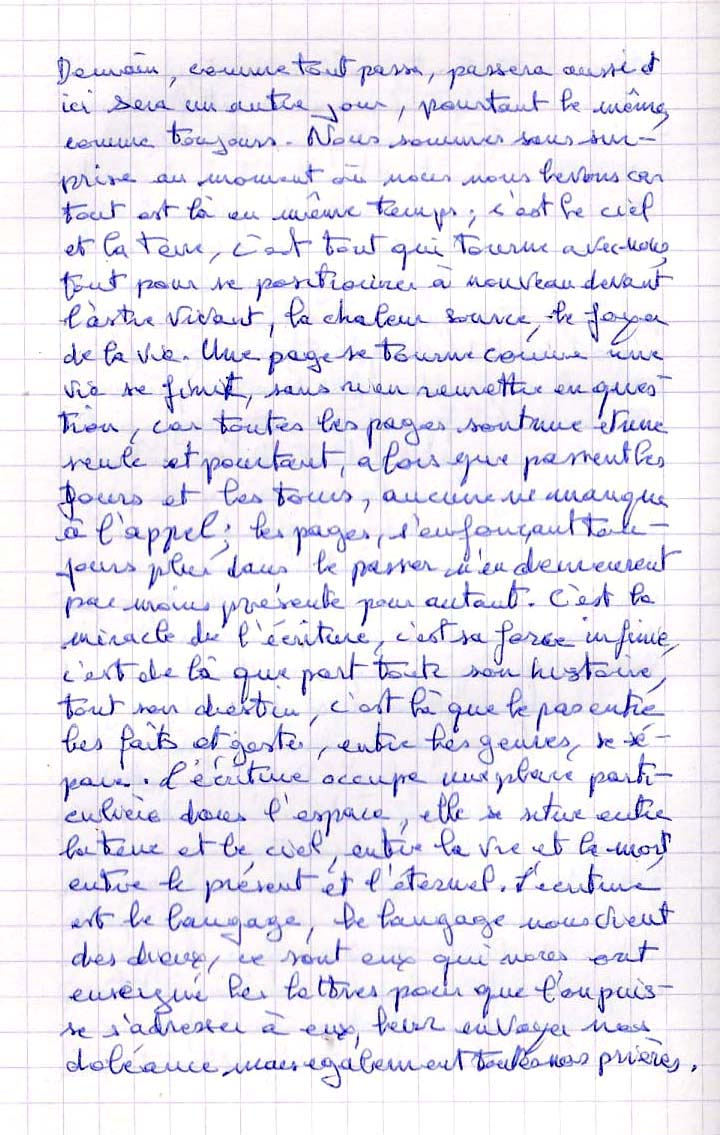 Demain, comme tout passe, passera aussi et
ici sera un autre jour, pourtant le même,
comme toujours. Nous sommes sans sur-
prise au moment où nous nous levons car
tout est là en même temps ; c'est le ciel
et la terre, c'est tout qui tourne avec nous,
tout pour se positionner à nouveau devant
l'astre vivant, la chaleur source, le foyer
de la vie. Une page se tourne comme une
vie se finit, sans rien remettre en ques-
tion, car toutes les pages sont une et une
seule et pourtant, alors que passent les
jours et les tours, aucune ne manque
à l'appel ; les pages, s'enfonçant tou-
jours plus dans le passer n'en demeurent
pas moins présente pour autant. C'est la
miracle de l'écriture, c'est sa force infinie,
c'est de là que part toute son histoire,
tout son destin, c'est là que le pas entre
les faits et gestes, entre les genres, se sé-
pare. L'écriture occupe une place parti-
culière dans l'espace, elle se situe entre
la terre et le ciel, entre la vie et la mort,
entre le présent et l'éternel. L'écriture
est le langage, le langage nous vient
des dieux, ce sont eux qui nous ont
enseigné les lettres pour que l'on puis-
se s'adresser à eux, leur envoyer nos
doléance mais également toutes nos prières.